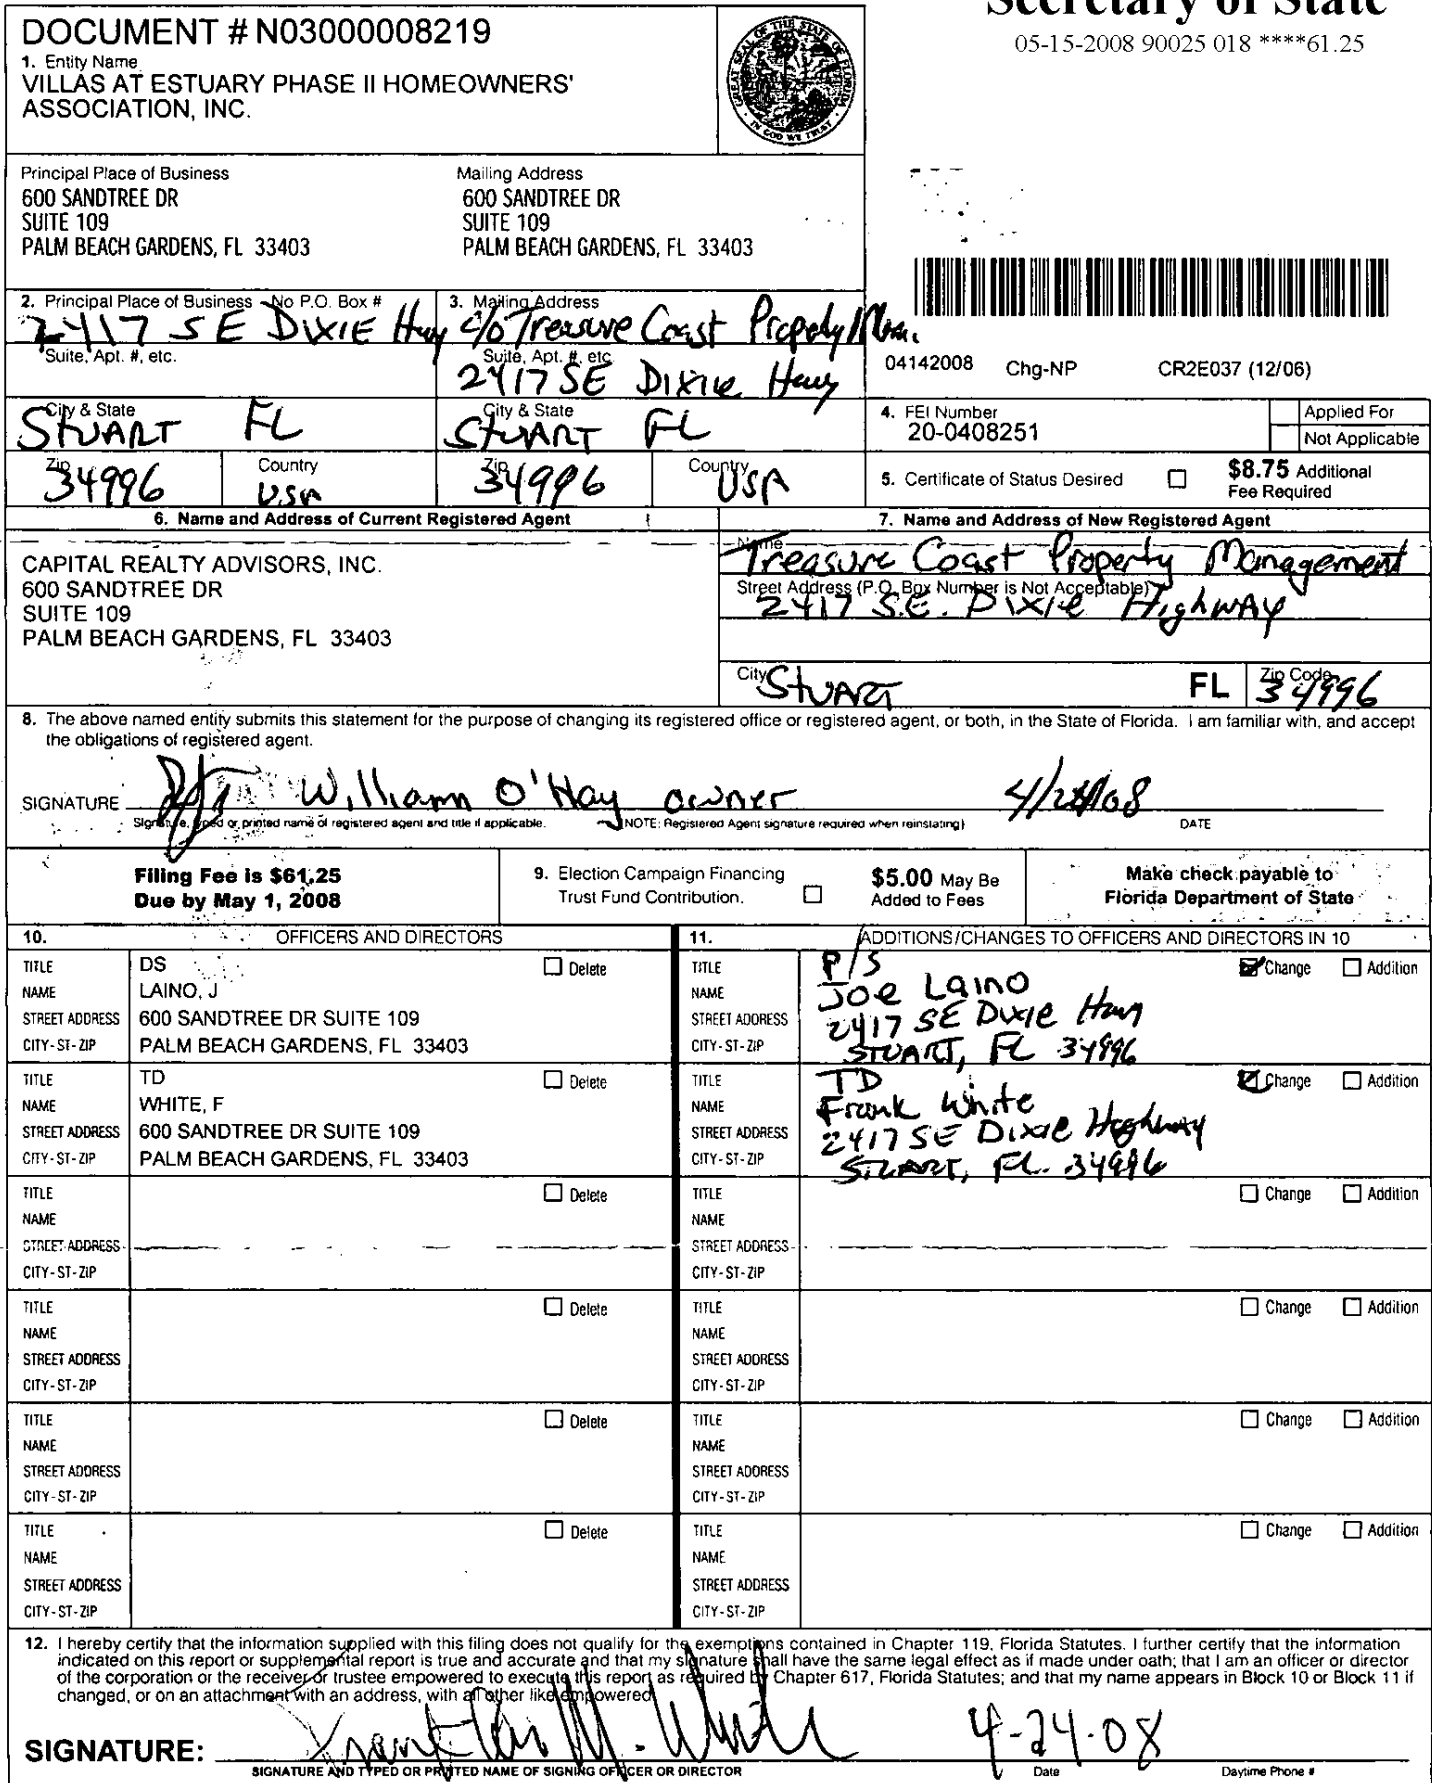 Secretary of State
05-15-2008 90025 018 ****61.25
DOCUMENT # N03000008219
1. Entity Name
VILLAS AT ESTUARY PHASE II HOMEOWNERS'
ASSOCIATION, INC.
GREAT SEAL OF THE STATE OF FLORIDA
IN GOD WE TRUST
Principal Place of Business
600 SANDTREE DR
SUITE 109
PALM BEACH GARDENS, FL 33403
Mailing Address
600 SANDTREE DR
SUITE 109
PALM BEACH GARDENS, FL 33403
2. Principal Place of Business - No P.O. Box #
2417 SE DIXIE Hwy
Suite, Apt. #, etc.
3. Mailing Address
c/o Treasure Coast Property
Suite, Apt. #, etc
2417 SE Dixie Hwy
04142008 Chg-NP CR2E037 (12/06)
City & State
STUART FL
City & State
STUART FL
Zip
34996
Country
USA
Zip
34996
Country
USA
4. FEI Number
20-0408251
Applied For
Not Applicable
5. Certificate of Status Desired
$8.75 Additional
Fee Required
6. Name and Address of Current Registered Agent
CAPITAL REALTY ADVISORS, INC.
600 SANDTREE DR
SUITE 109
PALM BEACH GARDENS, FL 33403
7. Name and Address of New Registered Agent
Name
Treasure Coast Property Management
Street Address (P.O. Box Number is Not Acceptable)
2417 S.E. Dixie HighWAY
City
STUART
FL
Zip Code
34996
8. The above named entity submits this statement for the purpose of changing its registered office or registered agent, or both, in the State of Florida. I am familiar with, and accept
the obligations of registered agent.
SIGNATURE
William O'Hay owner 4/24/08
Signature, typed or printed name of registered agent and title if applicable.
(NOTE: Registered Agent signature required when reinstating)
DATE
Filing Fee is $61.25
Due by May 1, 2008
9. Election Campaign Financing
Trust Fund Contribution.
$5.00 May Be
Added to Fees
Make check payable to
Florida Department of State
10. OFFICERS AND DIRECTORS
TITLE DS Delete
NAME LAINO, J
STREET ADDRESS 600 SANDTREE DR SUITE 109
CITY-ST-ZIP PALM BEACH GARDENS, FL 33403
TITLE TD Delete
NAME WHITE, F
STREET ADDRESS 600 SANDTREE DR SUITE 109
CITY-ST-ZIP PALM BEACH GARDENS, FL 33403
TITLE Delete
NAME
STREET ADDRESS
CITY-ST-ZIP
TITLE Delete
NAME
STREET ADDRESS
CITY-ST-ZIP
TITLE Delete
NAME
STREET ADDRESS
CITY-ST-ZIP
TITLE Delete
NAME
STREET ADDRESS
CITY-ST-ZIP
11. ADDITIONS/CHANGES TO OFFICERS AND DIRECTORS IN 10
TITLE P/S Change Addition
NAME Joe Laino
STREET ADDRESS 2417 SE Dixie Hwy
CITY-ST-ZIP STUART, FL 34996
TITLE TD Change Addition
NAME Frank White
STREET ADDRESS 2417 SE Dixie Highway
CITY-ST-ZIP STUART, FL. 34996
TITLE Change Addition
NAME
STREET ADDRESS
CITY-ST-ZIP
TITLE Change Addition
NAME
STREET ADDRESS
CITY-ST-ZIP
TITLE Change Addition
NAME
STREET ADDRESS
CITY-ST-ZIP
TITLE Change Addition
NAME
STREET ADDRESS
CITY-ST-ZIP
12. I hereby certify that the information supplied with this filing does not qualify for the exemptions contained in Chapter 119, Florida Statutes. I further certify that the information
indicated on this report or supplemental report is true and accurate and that my signature shall have the same legal effect as if made under oath; that I am an officer or director
of the corporation or the receiver or trustee empowered to execute this report as required by Chapter 617, Florida Statutes; and that my name appears in Block 10 or Block 11 if
changed, or on an attachment with an address, with all other like empowered.
SIGNATURE: M. White 4-24-08
SIGNATURE AND TYPED OR PRINTED NAME OF SIGNING OFFICER OR DIRECTOR
Date
Daytime Phone #